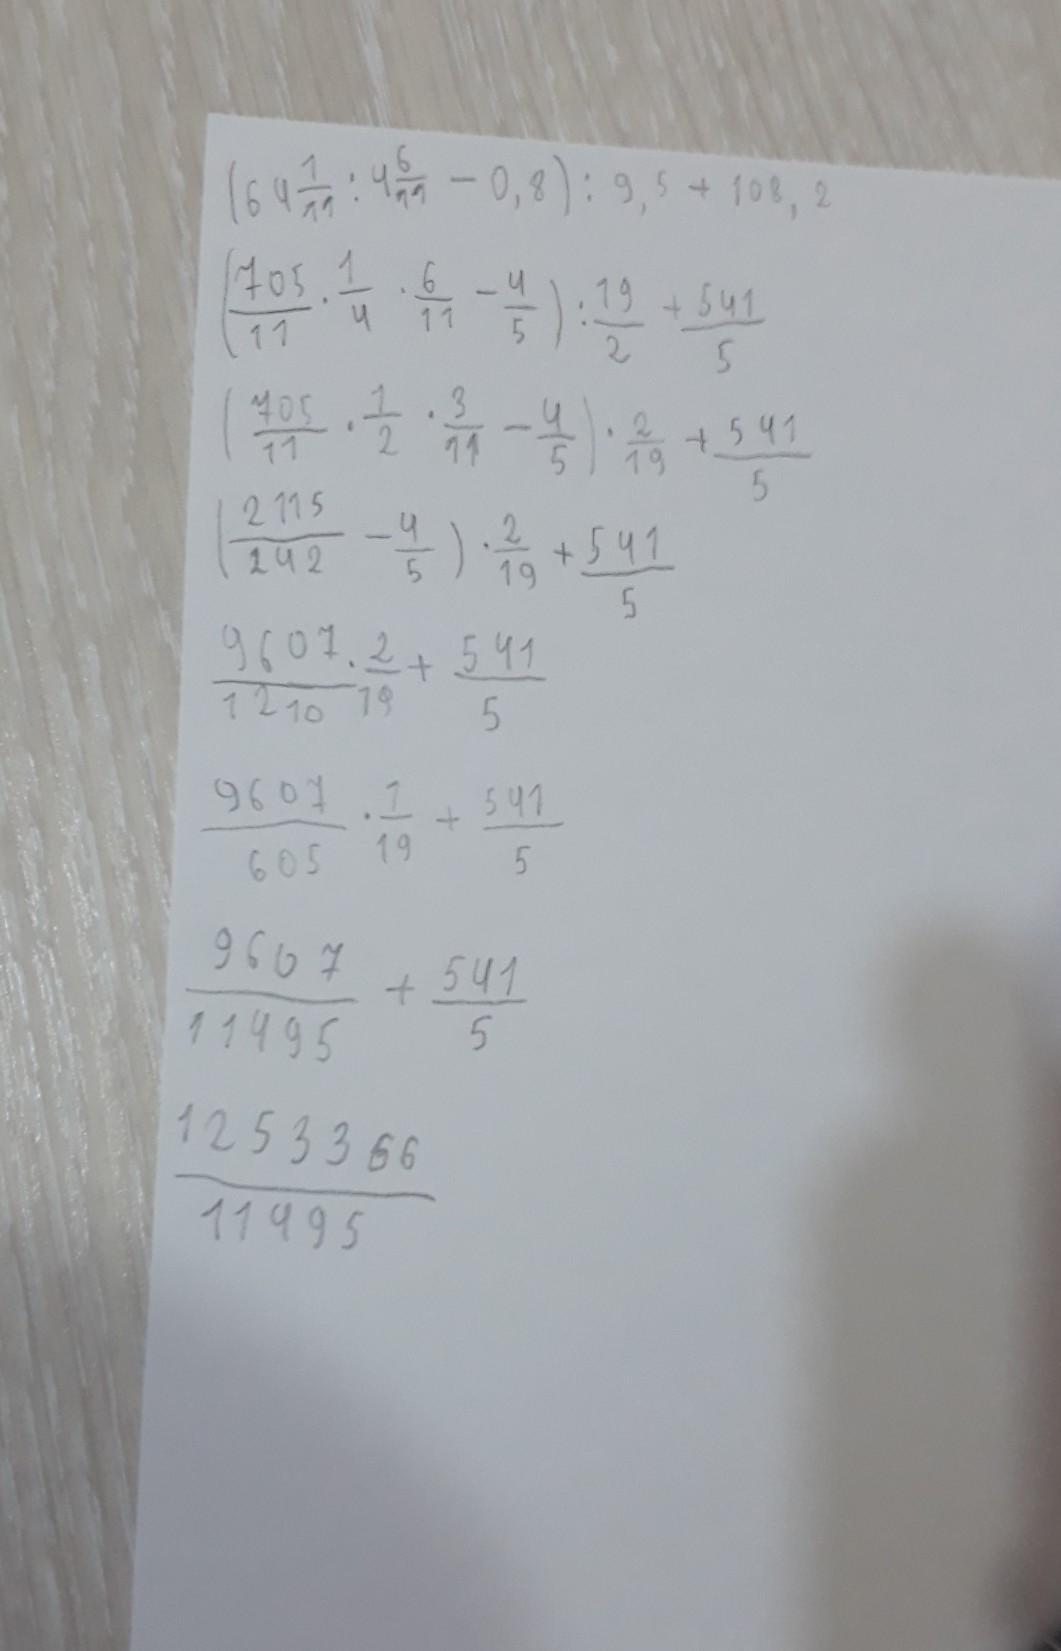 (64 1/11 : 4 6/11 - 0,8) : 9,5 + 108,2
(705/11 · 1/4 · 6/11 - 4/5) : 19/2 + 541/5
(705/11 · 1/2 · 3/11 - 4/5) · 2/19 + 541/5
(2115/242 - 4/5) · 2/19 + 541/5
9607/1210 · 2/19 + 541/5
9607/605 · 1/19 + 541/5
9607/11495 + 541/5
1253366/11495